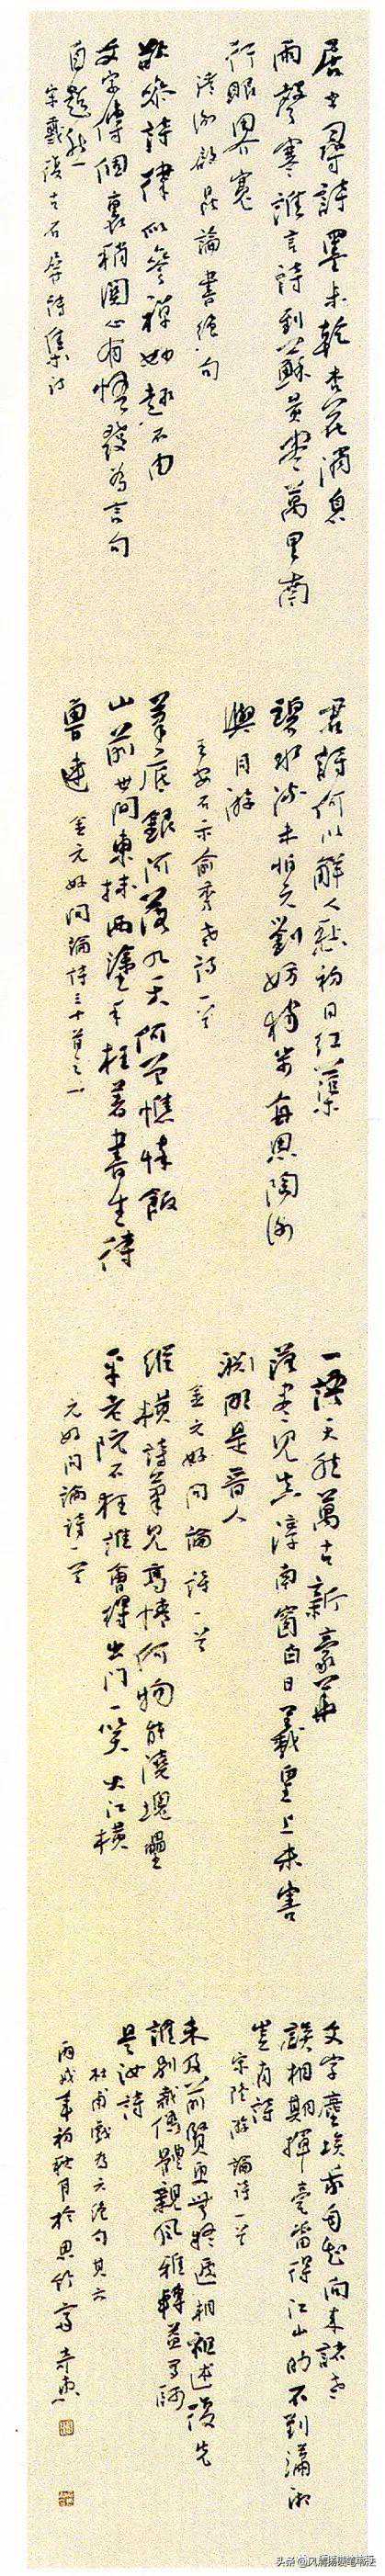 居士尋詩墨未乾杏花消息
雨聲寒誰言詩到蘇黃盡萬里南
行眼界寬
清謝啟昆論書絕句
欲參詩律似參禪妙趣不由
文字傳個裏稍關心有悟發為言句
自超然
宋戴復古石屏詩集詩
君詩何以解人愁初日紅蕖
碧水流未怕元劉妨獨步每思陶謝
與同游
王安石示俞秀老詩一首
筆底銀河落九天何曾憔悴飯
山前世間東抹西塗手枉著書生待
魯連 金元好問論詩三十首之一
一語天然萬古新豪華
落盡見真淳南窗白日羲皇上未害
淵明是晉人
金元好問論詩一首
縱橫詩筆見高情何物能澆塊壘
平老阮不狂誰會得出門一笑大江橫
元好問論詩一首
文字塵埃我自知向來諸老
誤相期揮毫當得江山助不到瀟湘
豈有詩
宋陸游論詩一首
未及前賢更無疑遞相祖述復先
誰別裁偽體親風雅轉益多師
是汝師
杜甫戲為六絕句其六
丙戌年初秋月於思竹齋
头条